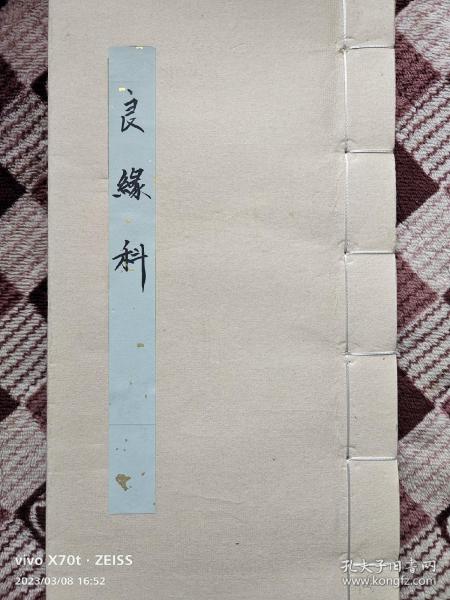 良緣科
vivo X70t · ZEISS
2023/03/08 16:52
孔夫子旧书网
www.kongfz.com